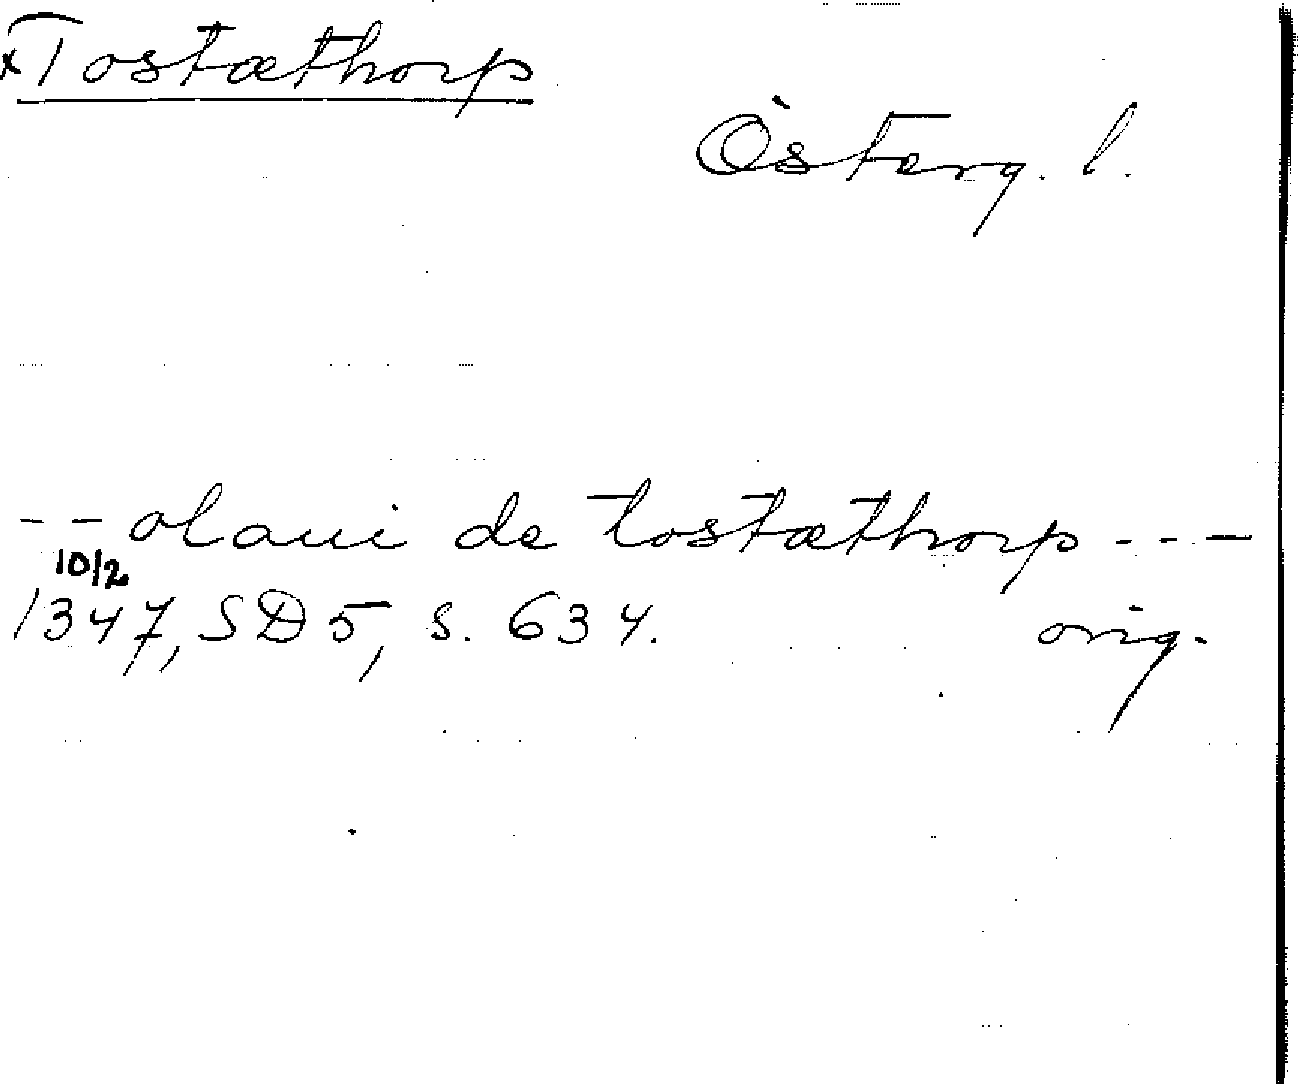 xTostæthorp
Österg. l.
-- olaui de tostæthorp ---
10/2
1347, SD 5, s. 634.
orig.